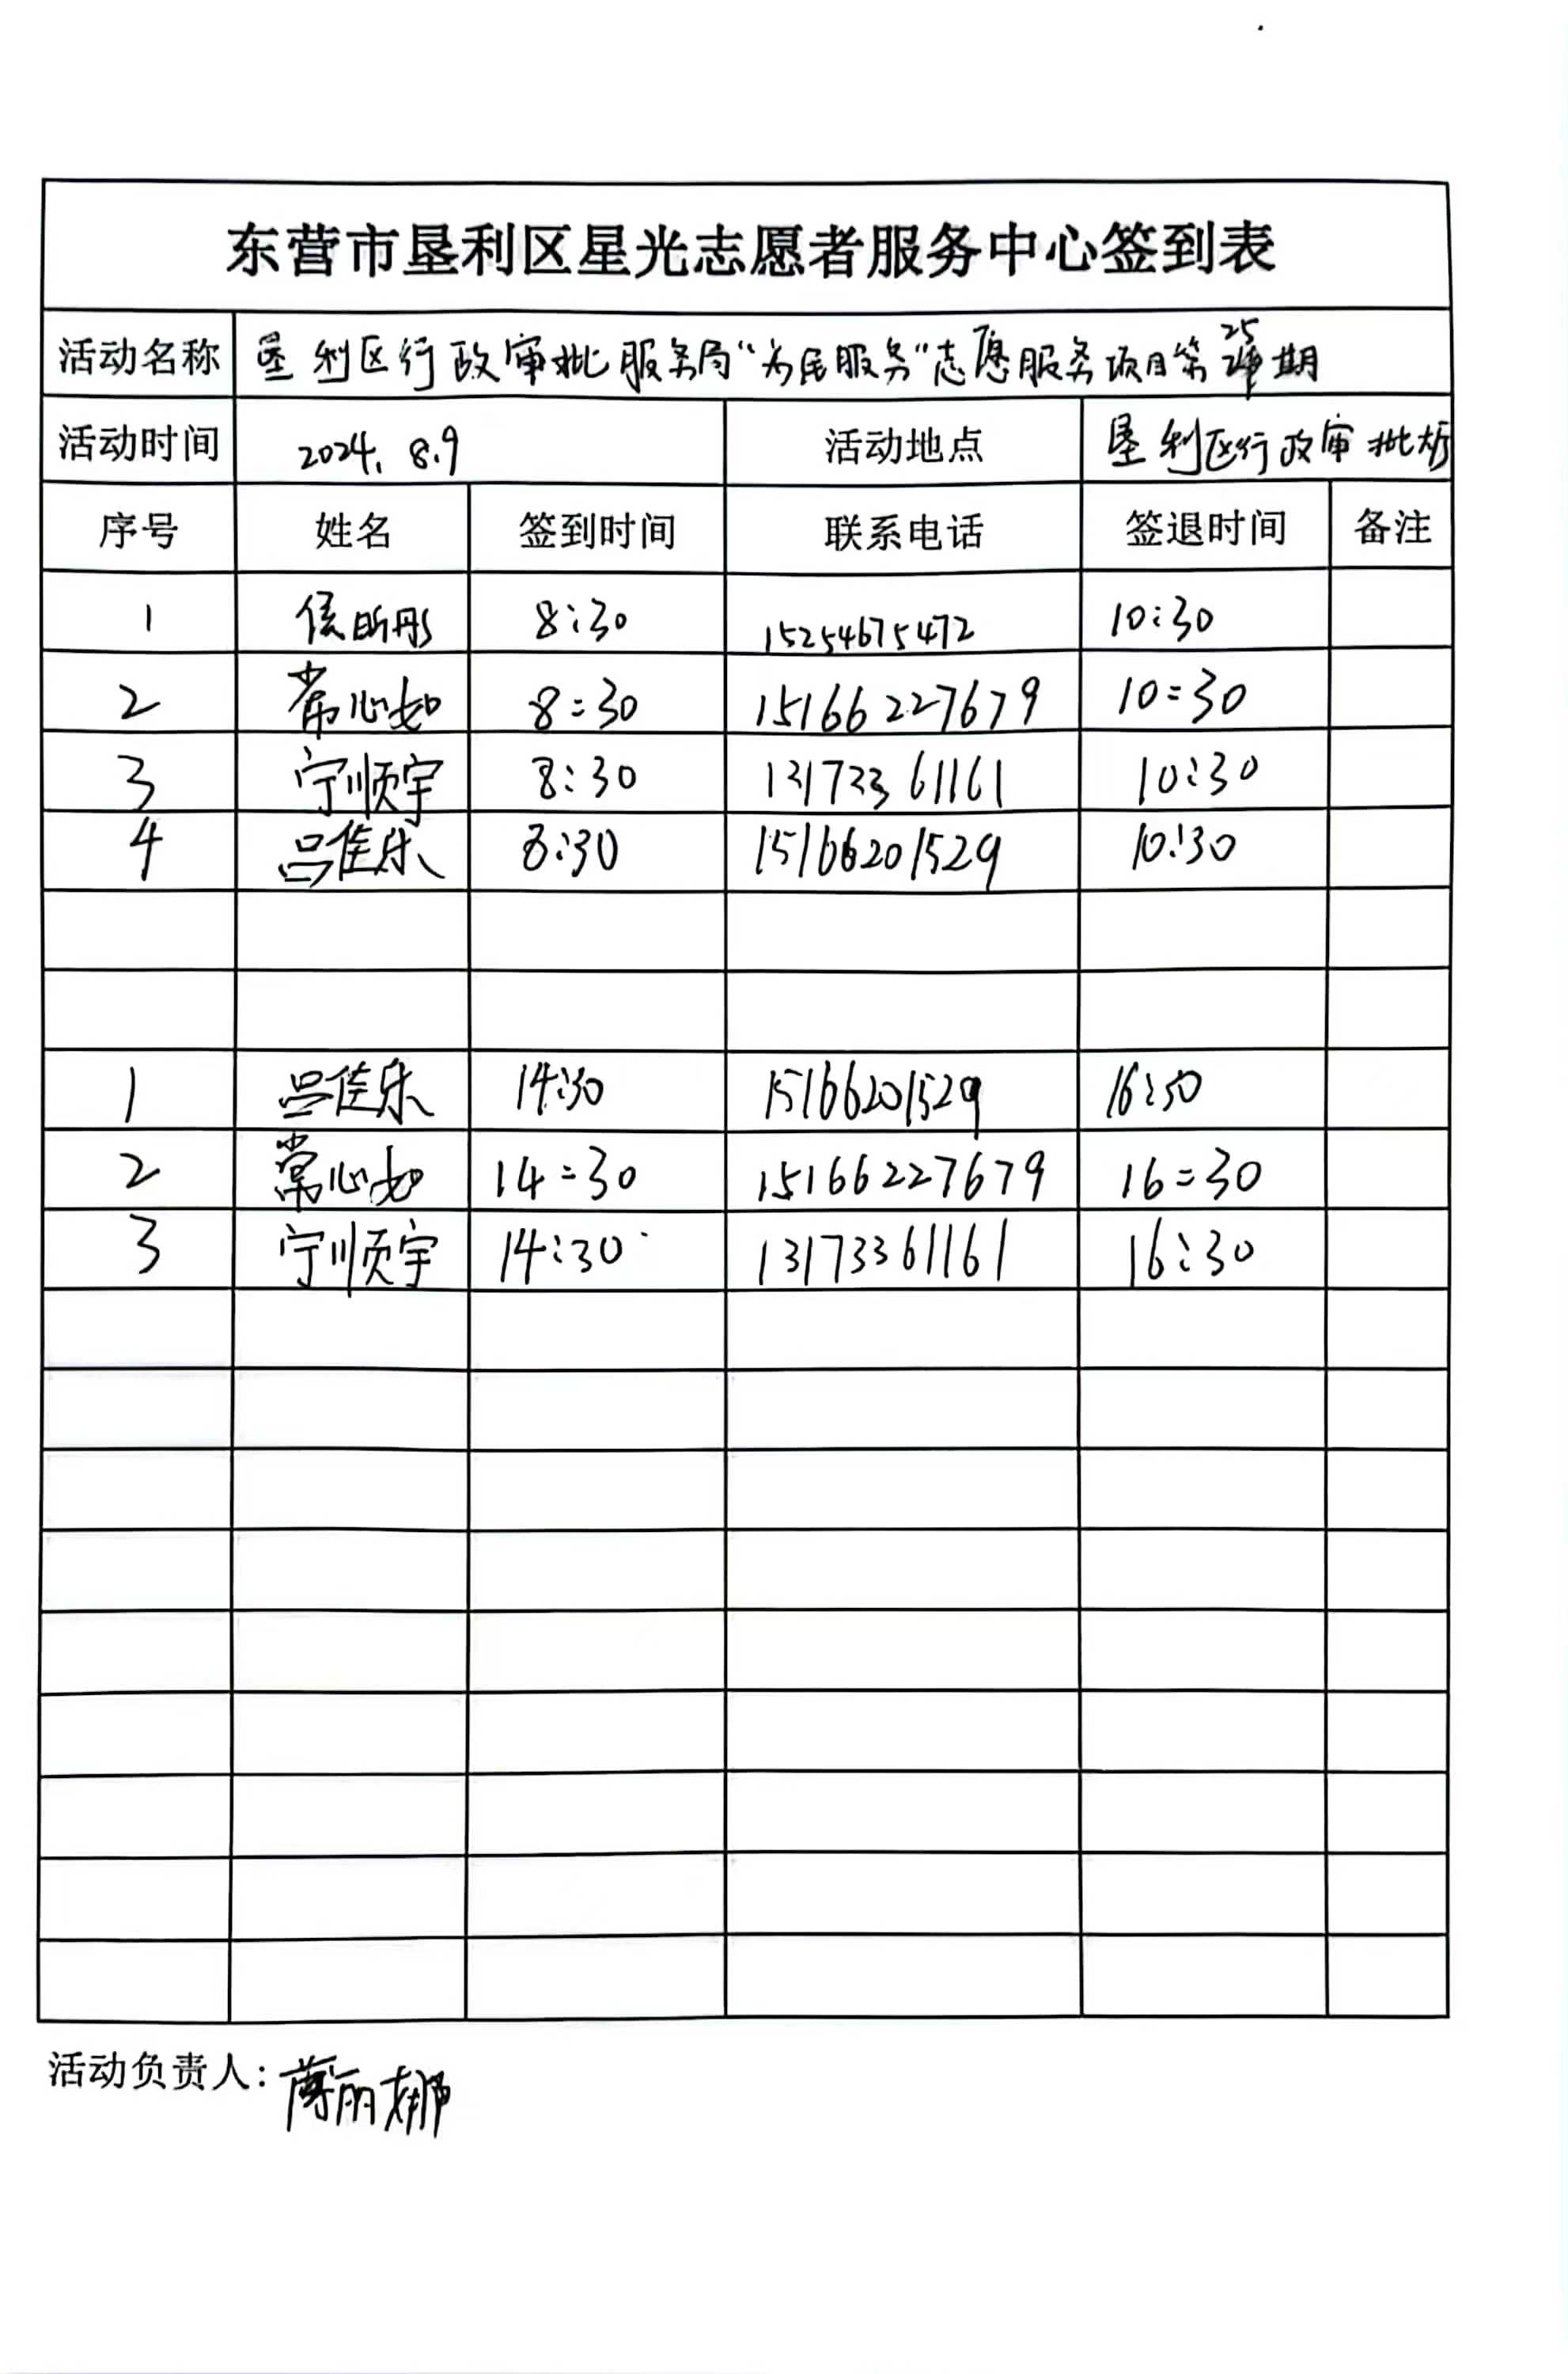 东营市垦利区星光志愿者服务中心签到表
活动名称 垦利区行政审批服务局“为民服务”志愿服务项目第25期
活动时间 2024.8.9 活动地点 垦利区行政审批
序号 姓名 签到时间 联系电话 签退时间 备注
1 侯昕彤 8:30 15254675472 10:30
2 常心如 8:30 15166227679 10:30
3 宁顺宇 8:30 13173361161 10:30
4 吕佳乐 8:30 15166201529 10:30
1 吕佳乐 14:30 15166201529 16:30
2 常心如 14:30 15166227679 16:30
3 宁顺宇 14:30 13173361161 16:30
活动负责人: 薄丽娜